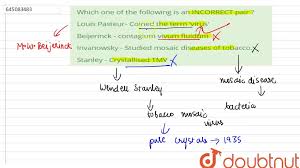 645083483
Which one of the following is an INCORRECT pair?
Louis Pasteur - Coined the term 'virus'
Beijerinck - contagium vivum fluidum X
Invanowsky - Studied mosaic diseases of tobacco X
Stanley - Crystallised TMV X
M.W. Beijerinck
Winden Stanley
mosaic disease
tobacco mosaic virus
bacteria
pure crystals → 1935
doubtnut